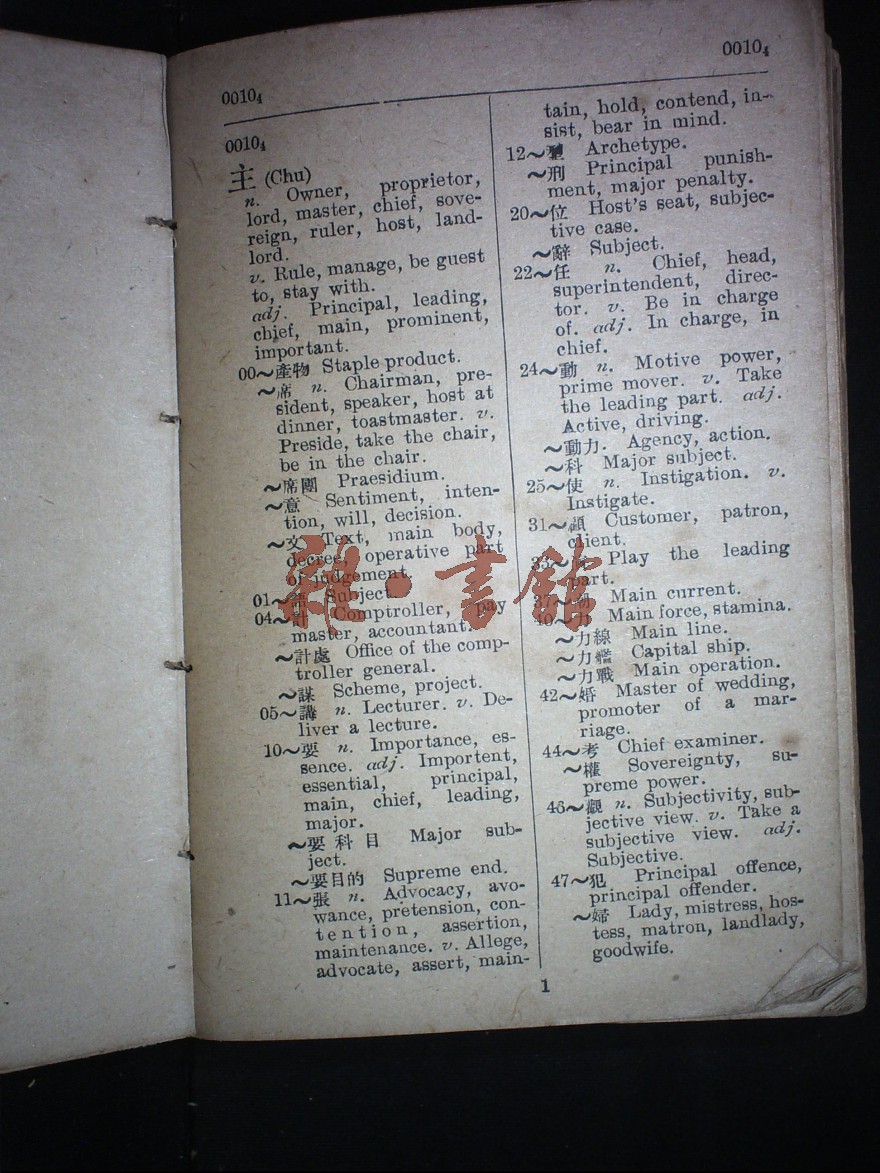 0010₄
0010₄
0010₄
主 (Chu)
n. Owner, proprietor,
lord, master, chief, sove-
reign, ruler, host, land-
lord.
v. Rule, manage, be guest
to, stay with.
adj. Principal, leading,
chief, main, prominent,
important.
00～產物 Staple product.
～席 n. Chairman, pre-
sident, speaker, host at
dinner, toastmaster. v.
Preside, take the chair,
be in the chair.
～席團 Praesidium.
～意 Sentiment, inten-
tion, will, decision.
～文 Text, main body,
decree, operative part
of judgement.
01～語 Subject.
04～計 Comptroller, pay
master, accountant.
～計處 Office of the comp-
troller general.
～謀 Scheme, project.
05～講 n. Lecturer. v. De-
liver a lecture.
10～要 n. Importance, es-
sence. adj. Importent,
essential, principal,
main, chief, leading,
major.
～要科目 Major sub-
ject.
～要目的 Supreme end.
11～張 n. Advocacy, avo-
wance, pretension, con-
tention, assertion,
maintenance. v. Allege,
advocate, assert, main-
tain, hold, contend, in-
sist, bear in mind.
12～ Archetype.
～刑 Principal punish-
ment, major penalty.
20～位 Host's seat, subjec-
tive case.
～辭 Subject.
22～任 n. Chief, head,
superintendent, direc-
tor. v. Be in charge
of. adj. In charge, in
chief.
24～動 n. Motive power,
prime mover. v. Take
the leading part. adj.
Active, driving.
～動力. Agency, action.
～科 Major subject.
25～使 n. Instigation. v.
Instigate.
31～顧 Customer, patron,
client.
33～ Play the leading
part.
37～潮 Main current.
40～力 Main force, stamina.
～力線 Main line.
～力艦 Capital ship.
～力戰 Main operation.
42～婚 Master of wedding,
promoter of a mar-
riage.
44～考 Chief examiner.
～權 Sovereignty, su-
preme power.
46～觀 n. Subjectivity, sub-
jective view. v. Take a
subjective view. adj.
Subjective.
47～犯 Principal offence,
principal offender.
～婦 Lady, mistress, hos-
tess, matron, landlady,
goodwife.
1
雜·書館